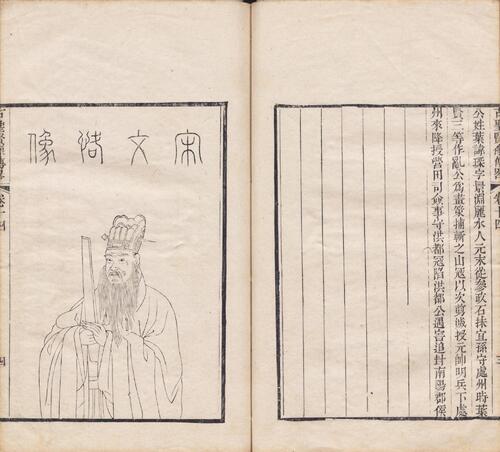 古聖賢像傳略 卷十四 三
公姓葉諱琛字景淵麗水人元末從參政石抹宜孫守處州時葉
賢三等作亂公爲畫策捕斬之山寇以次剪滅授元帥明兵下處
州來降授營田司僉事守洪都寇陷洪都公遇害追封南陽郡侯
宋文恪像
古聖賢像傳略 卷十四 四